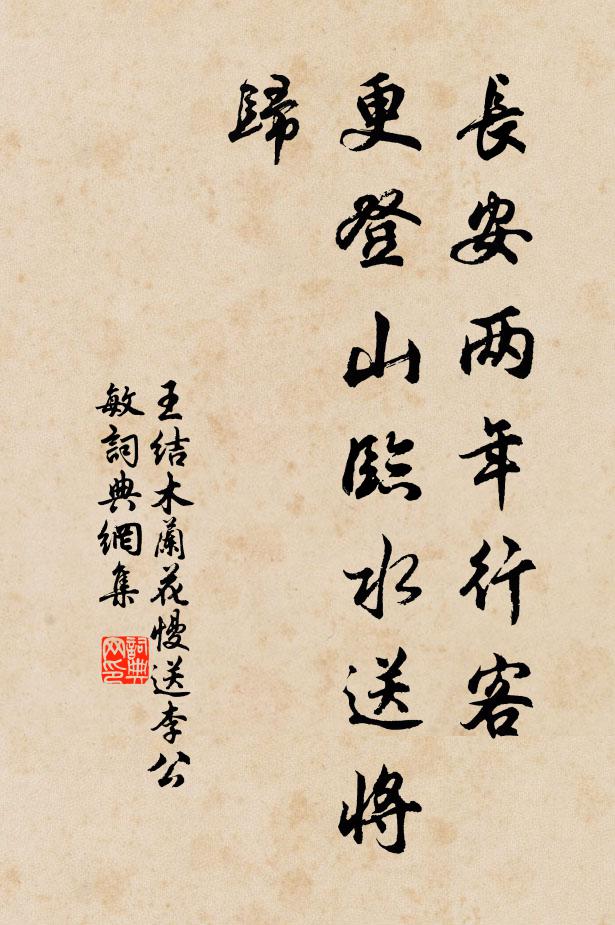 長安两年行客
更登山臨水送將
歸
王结木蘭花慢送李公
敏詞典網集
詞典
网印